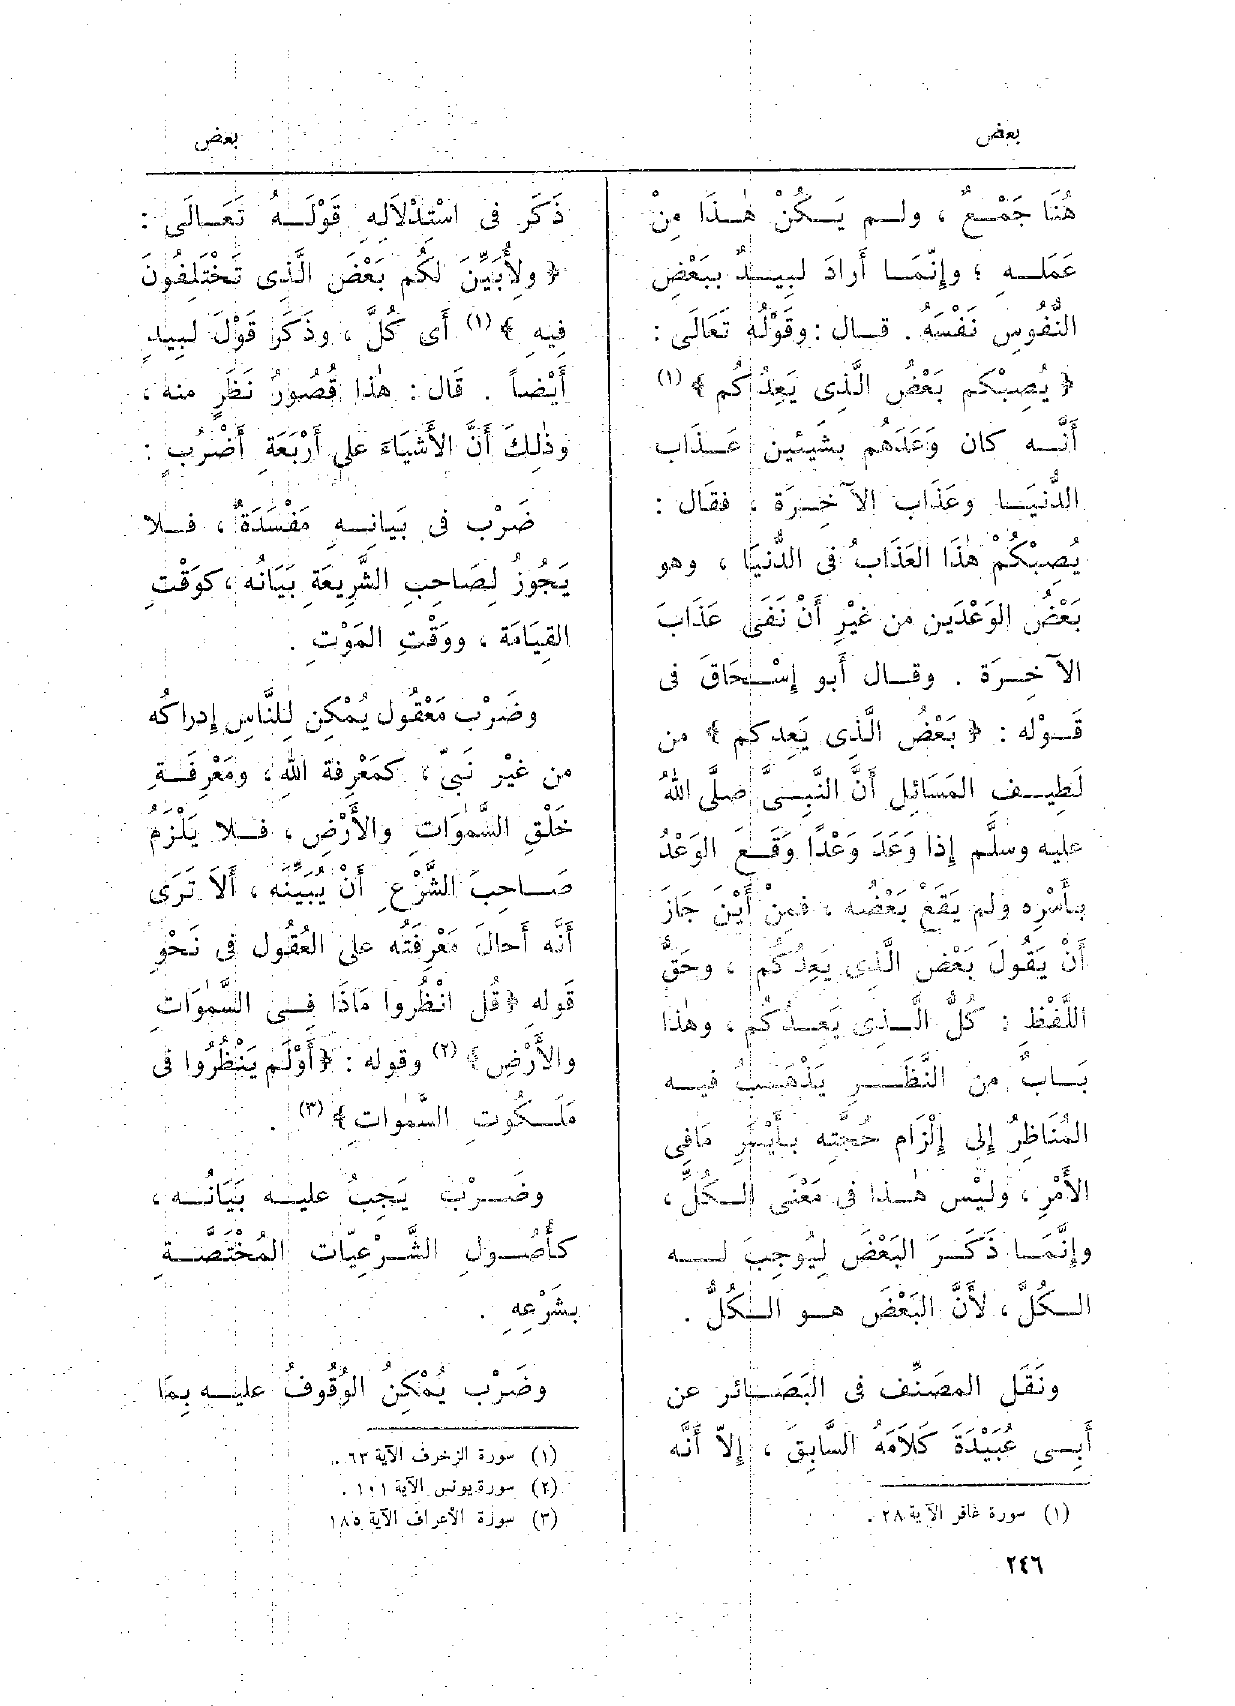 بعض
بعض
هُنَا جَمْعٌ ، ولم يَكُنْ هٰذَا مِنْ
عَمَلِهِ ؛ وإنَّمَا أَرادَ لَبِيدٌ بِبَعْضِ
النُّفُوسِ نَفْسَهُ . قال : وقَوْلُه تَعَالَى :
﴿ يُصِبْكم بَعْضُ الَّذِى يَعِدُكُم ﴾ (١)
أَنَّه كان وَعَدَهُم بشَيئين عَذَاب
الدُّنيَا وعَذَاب الآخِرَة ، فقَال :
يُصِبْكُمْ هٰذَا العَذَابُ فى الدُّنيَا ، وهو
بَعْضُ الوَعْدَين من غيْرِ أَنْ نَفَى عَذَابَ
الآخِرَة . وقال أَبو إسْحَاقَ فى
قَوْله : ﴿ بَعْضُ الَّذِى يَعِدكم ﴾ من
لَطِيفِ المَسَائِلِ أَنَّ النَّبِىَّ صلَّى اللهُ
عليه وسلَّم إذا وَعَدَ وَعْدًا وَقَعَ الوَعْدُ
بأَسْرِه ولم يَقَعْ بَعْضُه ، فمِنْ أَيْنَ جَازَ
أَنْ يَقُولَ بَعْض الَّذِى يَعِدُكُم ، وحَقُّ
اللَّفْظِ : كُلُّ الَّذِى يَعِدُكُم ، وهٰذا
بَابٌ من النَّظَرِ يَذْهَبُ فيه
المُنَاظِرُ إلى إلْزَام حُجَّتِه بأَيْسَرِ مَافِى
الأَمْرِ ، وليْس هٰذا فى مَعْنَى الكُلِّ ،
وإنَّمَا ذَكَرَ البَعْضَ لِيُوجِبَ له
الكُلَّ ، لأَنَّ البَعْضَ هو الكُلُّ .
ونَقَل المصَنِّف فى البَصَائر عن
أَبِى عُبَيْدَةَ كَلَامَهُ السَّابِقَ ، إلاّ أَنَّه
(١) سورة غافر الآية ٢٨ .
٢٤٦
ذَكَر فى اسْتِدْلَالِهِ قَوْلَهُ تَعَالَى :
﴿ ولِأُبَيِّنَ لكُم بَعْضَ الَّذِى تَخْتَلِفُونَ
فِيهِ ﴾ (١) أَى كُلَّ ، وذَكَرَ قَوْلَ لَبِيدٍ
أَيْضاً . قَال : هٰذا قُصُورُ نَظَرٍ منه ،
وذٰلِكَ أَنَّ الأَشْيَاءَ على أَرْبَعَةِ أَضْرُبٍ :
ضَرْب فى بَيانِهِ مَفْسَدَةٌ ، فلا
يَجُوزُ لِصَاحِبِ الشَّرِيعَةِ بَيَانُه ، كوَقْتِ
القِيَامَة ، ووَقْتِ المَوْتِ .
وضَرْب مَعْقُول يُمْكِن لِلنَّاسِ إدراكُه
من غيْر نَبِىّ ، كمَعْرِفة اللهِ ، ومَعْرِفَةِ
خَلْقِ السَّمٰوَاتِ والأَرْضِ ، فلا يَلْزَمُ
صَاحِبَ الشَّرْعِ أَنْ يُبَيِّنَه ، أَلَا تَرَى
أَنَّه أَحالَ مَعْرِفَتَه على العُقُول فى نَحْوِ
قَولِه ﴿قُل انْظُروا مَاذَا فِى السَّمٰوَاتِ
والأَرْضِ﴾ (٢) وقوله : ﴿أَوَلَم يَنْظُرُوا فى
مَلَكُوتِ السَّمٰوات﴾ (٣) .
وضَرْب يَجِبُ عليه بَيَانُه ،
كأُصُولِ الشَّرْعِيّات المُخْتَصَّةِ
بشَرْعِهِ .
وضَرْب يُمْكِنُ الوُقُوفُ عليه بِمَا
(١) سورة الزخرف الآية ٦٣ .
(٢) سورة يونس الآية ١٠١ .
(٣) سورة الأعراف الآية ١٨٥